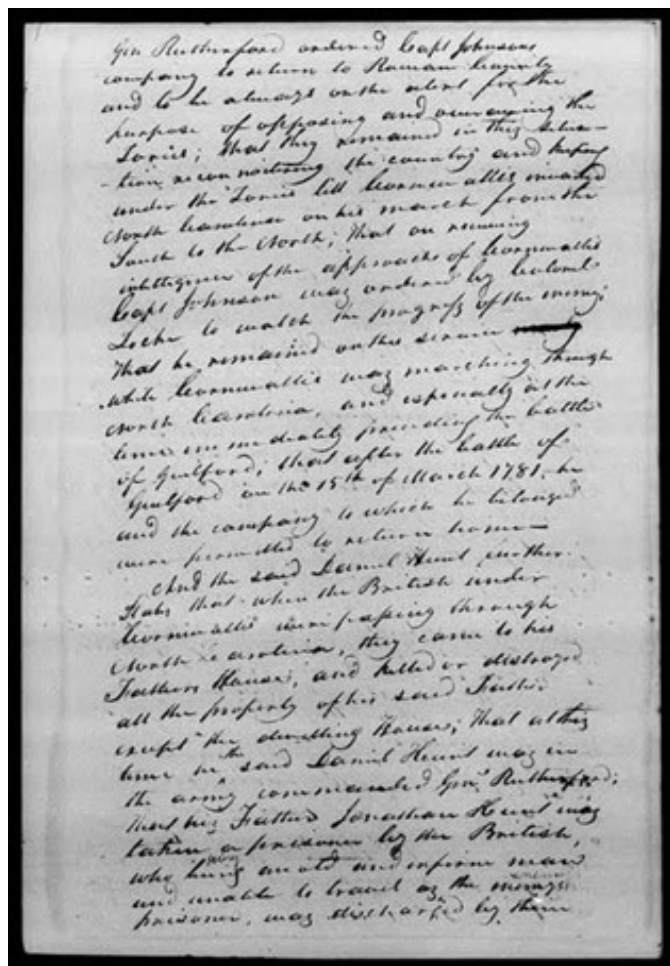 Gen Rutherford ordered Capt Johnsons
company to return to Rowan County
and to be always on the alert for the
purpose of opposing and overawing the
Tories; that they remained in this situa-
-tion reconnoitering the country and keeping
under the Tories till Cornwallis invaded
North Carolina on his march from the
South to the North; That on receiving
intelligence of the approach of Cornwallis
Capt Johnson was ordered by Colonel
Locke to watch the progress of the enemy;
that he remained on this service
while Cornwallis was marching through
North Carolina, and especially at the
time immediately preceding the battle
of Guilford; that after the battle of
Guilford on the 15th of March 1781, he
and the company to which he belonged
were permitted to return home—
And the said Daniel Hunt further
States that when the British under
Cornwallis were passing through
North Carolina, they came to his
Fathers House, and killed or distroyd
all the property of his said Father
except the dwelling House; that at this
time he the said Daniel Hunt was in
the army commanded Genl Rutherford;
that his Father Jonathan Hunt was
taken a prisoner by the British,
who being an old and infirm man
and unable to travel as the enemys
prisoner, was discharged by them